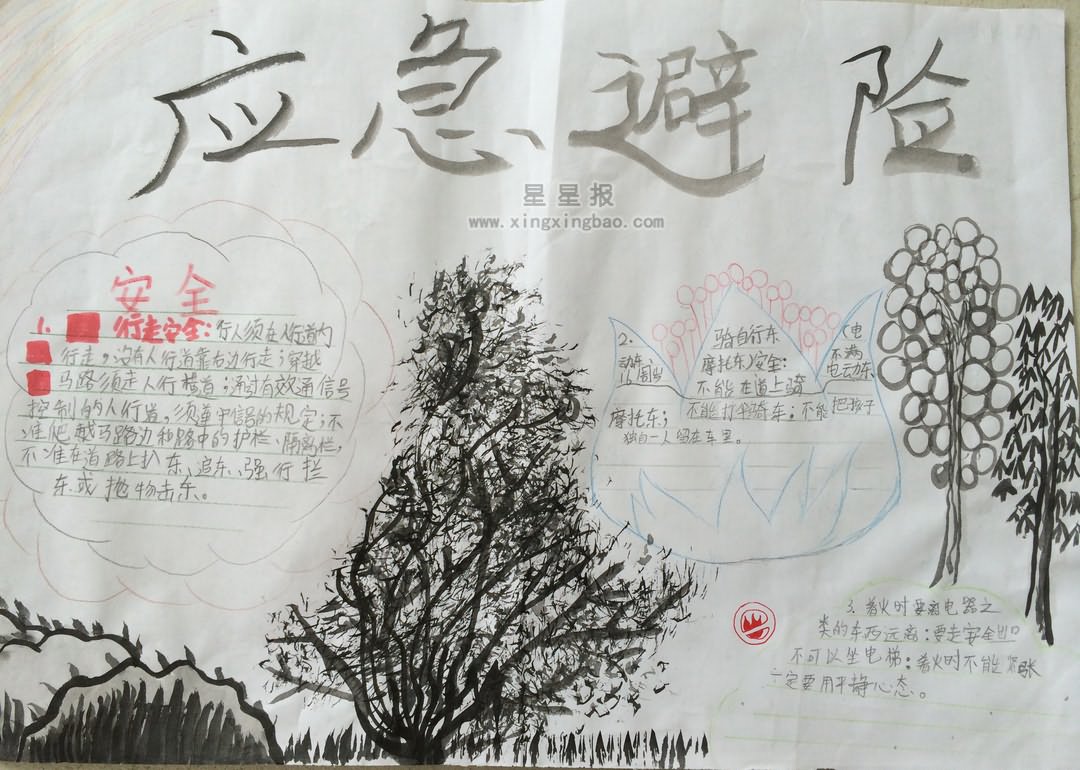 应急避险
星星报
www.xingxingbao.com
安全
1. 行走安全:行人须在人行道内
行走,没有人行道靠右边行走;穿越
马路须走人行横道;通过有效通信号
控制的人行道,须遵守信号的规定;不
准爬越马路边和路中的护栏、隔离栏,
不准在道路上扒车、追车、强行拦
车或抛物击车。
2. 骑自行车(电
动车 摩托车)安全:不满
16周岁 不能在道上骑电动车
摩托车;不能打伞骑车;不能把孩子
独自一人留在车里。
3.着火时要离电器之
类的东西远离:要走安全出口
不可以坐电梯:着火时不能紧张
一定要用平静心态。